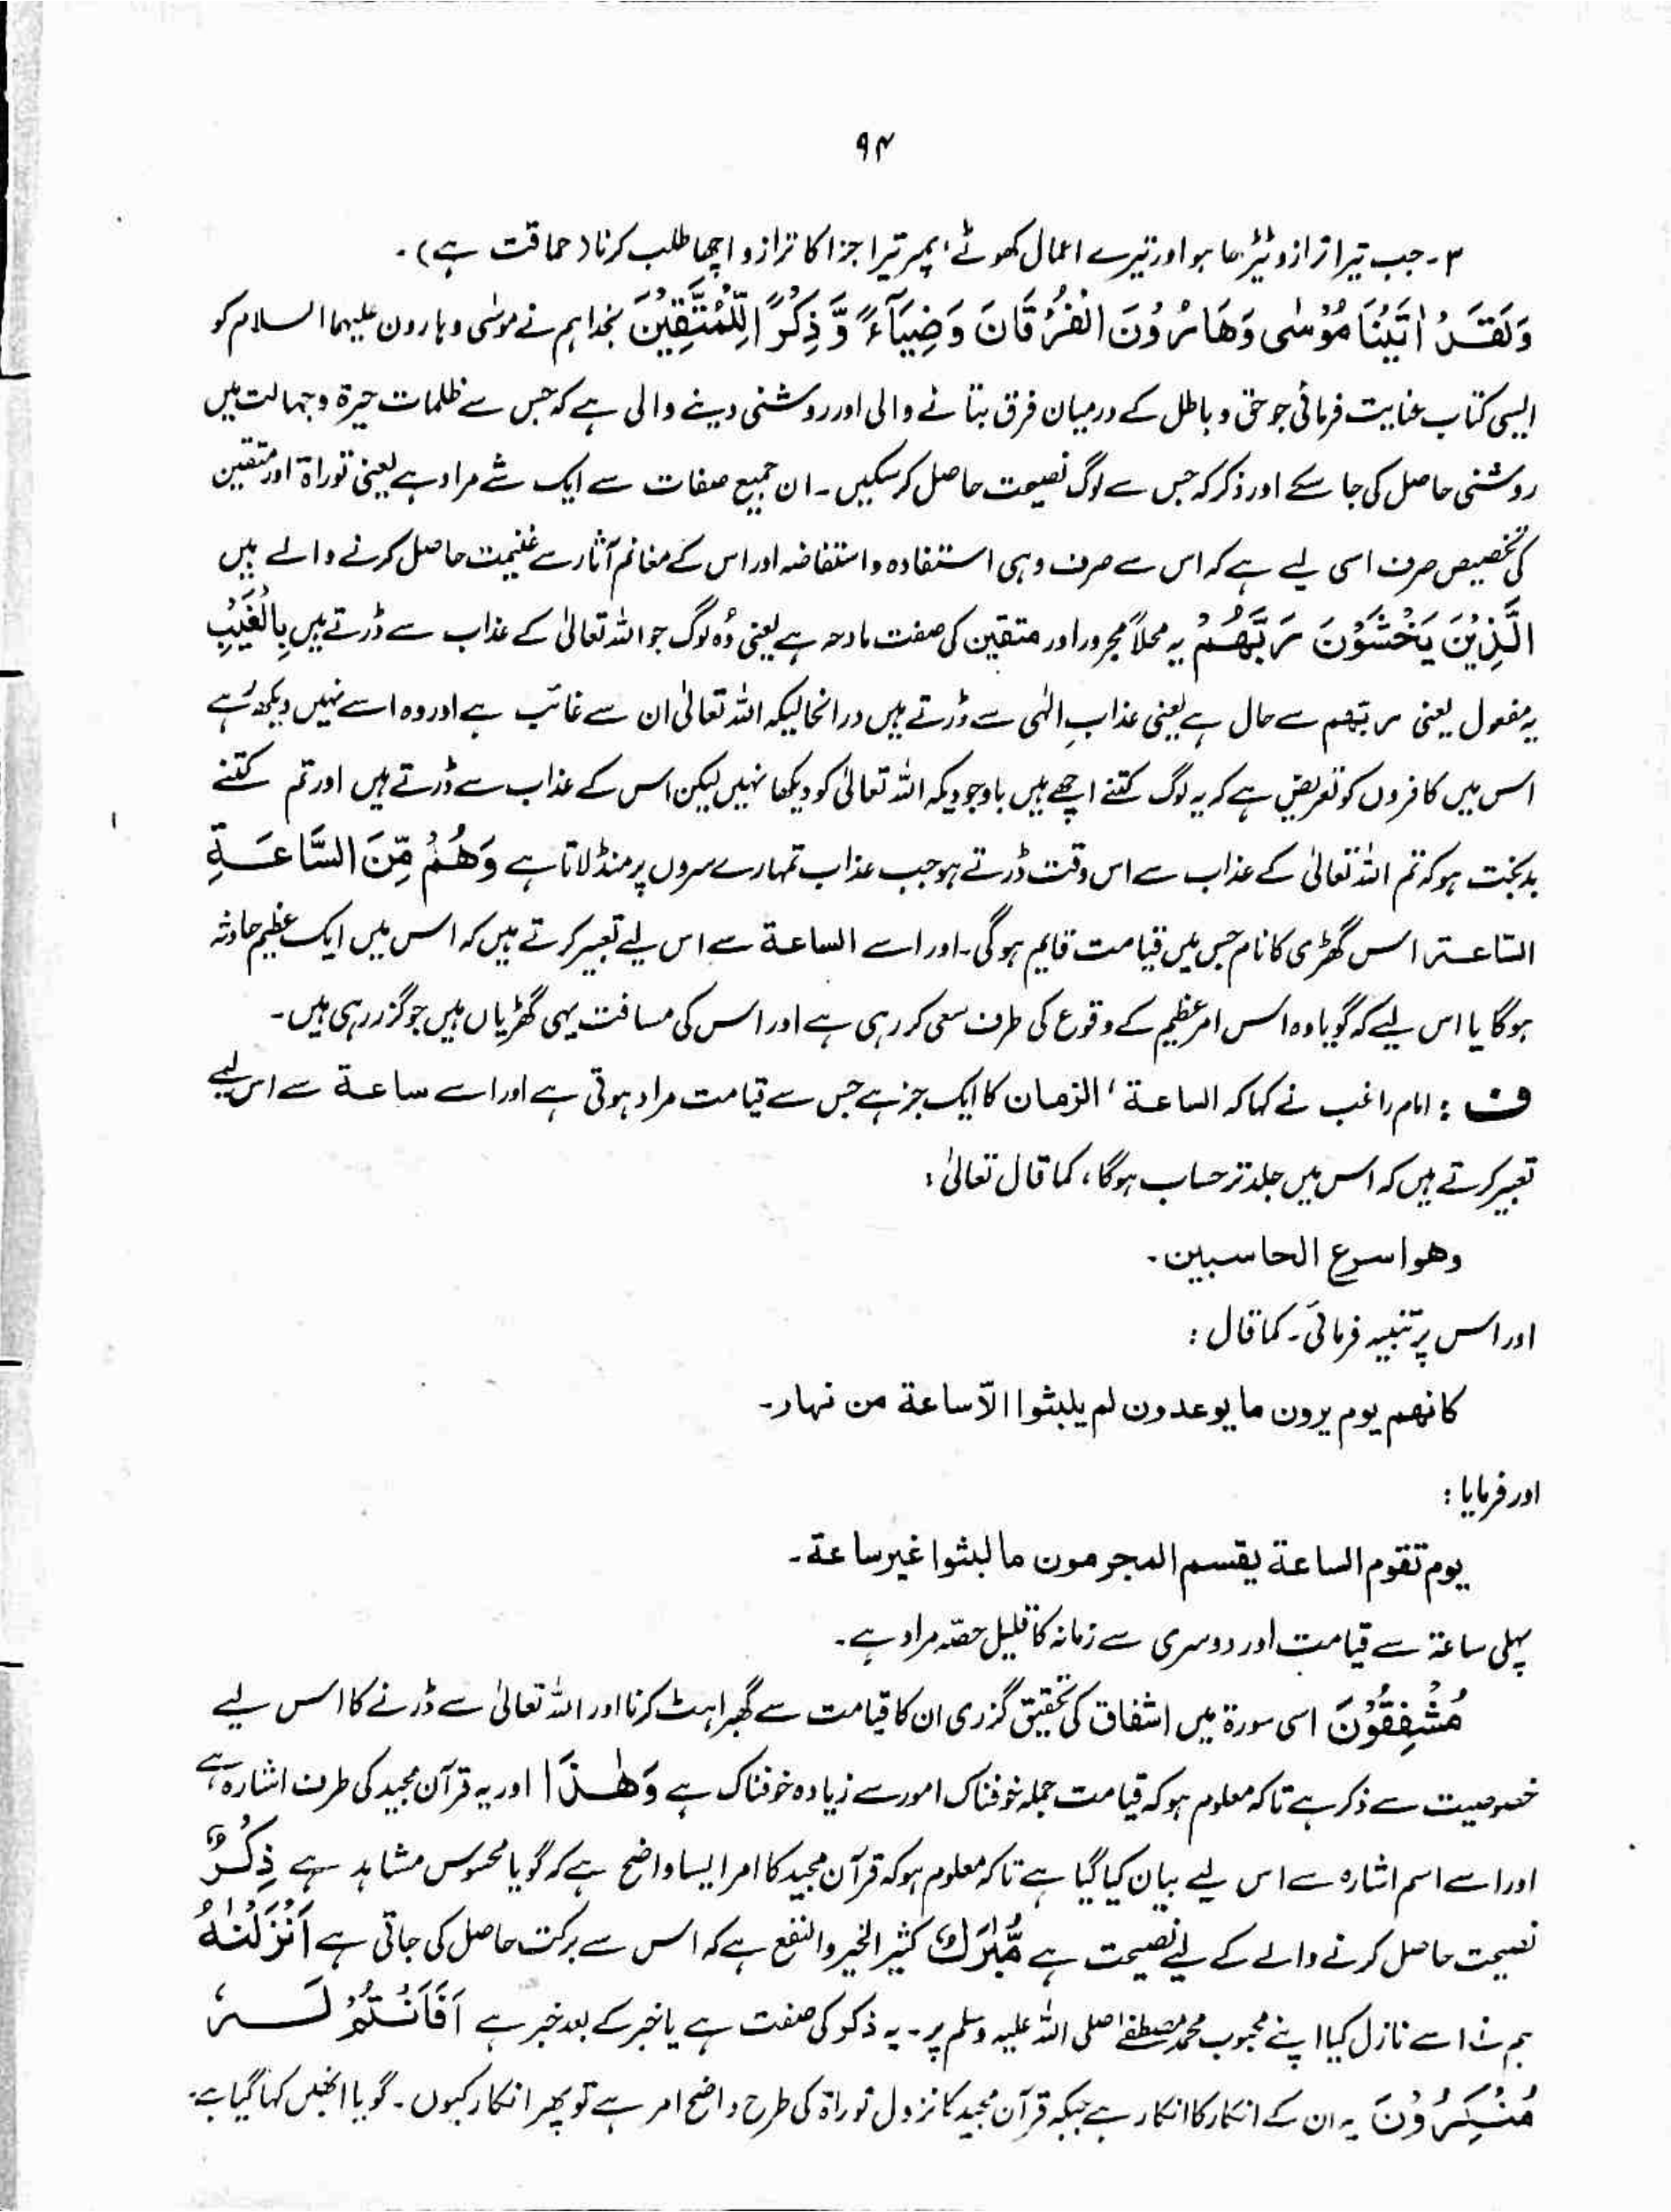 ۹۴
۳- جب تیرا ترازو ٹیڑھا ہو اور تیرے اعمال کھوٹے' پھر تیرا جزا کا ترازو اچھا طلب کرنا (حماقت ہے)۔
وَلَقَدْ اٰتَیْنَا مُوْسٰی وَھَارُوْنَ الْفُرْقَانَ وَضِیَآءً وَّذِکْرًا لِّلْمُتَّقِیْنَ بخدا ہم نے موسٰی و ہارون علیہما السلام کو
ایسی کتاب عنایت فرمائی جو حق و باطل کے درمیان فرق بتانے والی اور روشنی دینے والی ہے کہ جس سے ظلمات حیرۃ و جہالت میں
روشنی حاصل کی جا سکے اور ذکر کہ جس سے لوگ نصیحت حاصل کرسکیں۔ ان جمیع صفات سے ایک شے مراد ہے یعنی توراۃ اور متقین
کی تخصیص صرف اسی لیے ہے کہ اس سے صرف وہی استفادہ و استفاضہ اور اس کے مغانم آثار سے غنیمت حاصل کرنے والے ہیں
الَّذِیْنَ یَخْشَوْنَ رَبَّھُمْ یہ محلاً مجرور اور متقین کی صفت مادحہ ہے یعنی وُہ لوگ جو اللہ تعالیٰ کے عذاب سے ڈرتے ہیں بِالْغَیْبِ
یہ مفعول یعنی ربھم سے حال ہے یعنی عذابِ الٰہی سے ڈرتے ہیں درانحالیکہ اللہ تعالیٰ ان سے غائب ہے اور وہ اسے نہیں دیکھ رہے
اس میں کافروں کو تعریض ہے کہ یہ لوگ کتنے اچھے ہیں باوجودیکہ اللہ تعالیٰ کو دیکھا نہیں لیکن اس کے عذاب سے ڈرتے ہیں اور تم کتنے
بدبخت ہو کہ تم اللہ تعالیٰ کے عذاب سے اس وقت ڈرتے ہو جب عذاب تمہارے سروں پر منڈلاتا ہے وَھُمْ مِّنَ السَّاعَۃِ
السّاعۃ اس گھڑی کا نام جس میں قیامت قایم ہوگی۔ اور اسے الساعۃ سے اس لیے تعبیر کرتے ہیں کہ اس میں ایک عظیم حادثہ
ہوگا یا اس لیے کہ گویا وہ اس امر عظیم کے وقوع کی طرف سعی کر رہی ہے اور اس کی مسافت یہی گھڑیاں ہیں جو گزر رہی ہیں۔
ف : امام راغب نے کہا کہ الساعۃ ' الزمان کا ایک جز ہے جس سے قیامت مراد ہوتی ہے اور اسے ساعۃ سے اس لیے
تعبیر کرتے ہیں کہ اس میں جلد تر حساب ہوگا، کما قال تعالیٰ :
وھو اسرع الحاسبین۔
اور اس پر تنبیہ فرمائی۔ کما قال :
کانھم یوم یرون ما یوعدون لم یلبثوا الّا ساعۃ من نہار۔
اور فرمایا :
یوم تقوم الساعۃ یقسم المجرمون ما لبثوا غیر ساعۃ۔
پہلی ساعۃ سے قیامت اور دوسری سے زمانہ کا قلیل حصّہ مراد ہے۔
مُشْفِقُوْنَ اسی سورۃ میں اشفاق کی تحقیق گزری ان کا قیامت سے گھبراہٹ کرنا اور اللہ تعالیٰ سے ڈرنے کا اس لیے
خصوصیت سے ذکر ہے تاکہ معلوم ہو کہ قیامت جملہ خوفناک امور سے زیادہ خوفناک ہے وَھٰذَا اور یہ قرآن مجید کی طرف اشارہ ہے
اور اسے اسم اشارہ سے اس لیے بیان کیا گیا ہے تاکہ معلوم ہو کہ قرآن مجید کا امر ایسا واضح ہے کہ گویا محسوس مشاہد ہے ذِکْرٌ
نصیحت حاصل کرنے والے کے لیے نصیحت ہے مُّبٰرَکٌ کثیر الخیر والنفع ہے کہ اس سے برکت حاصل کی جاتی ہے اَنْزَلْنٰہُ
ہم نے اسے نازل کیا اپنے محبوب محمد مصطفٰے صلی اللہ علیہ وسلم پر۔ یہ ذکر کی صفت ہے یا خبر کے بعد خبر ہے اَفَاَنْتُمْ لَہٗ
مُنْکِرُوْنَ یہ ان کے انکار کا انکار ہے جبکہ قرآن مجید کا نزول توراۃ کی طرح واضح امر ہے تو پھر انکار کیوں۔ گویا انھیں کہا گیا ہے: